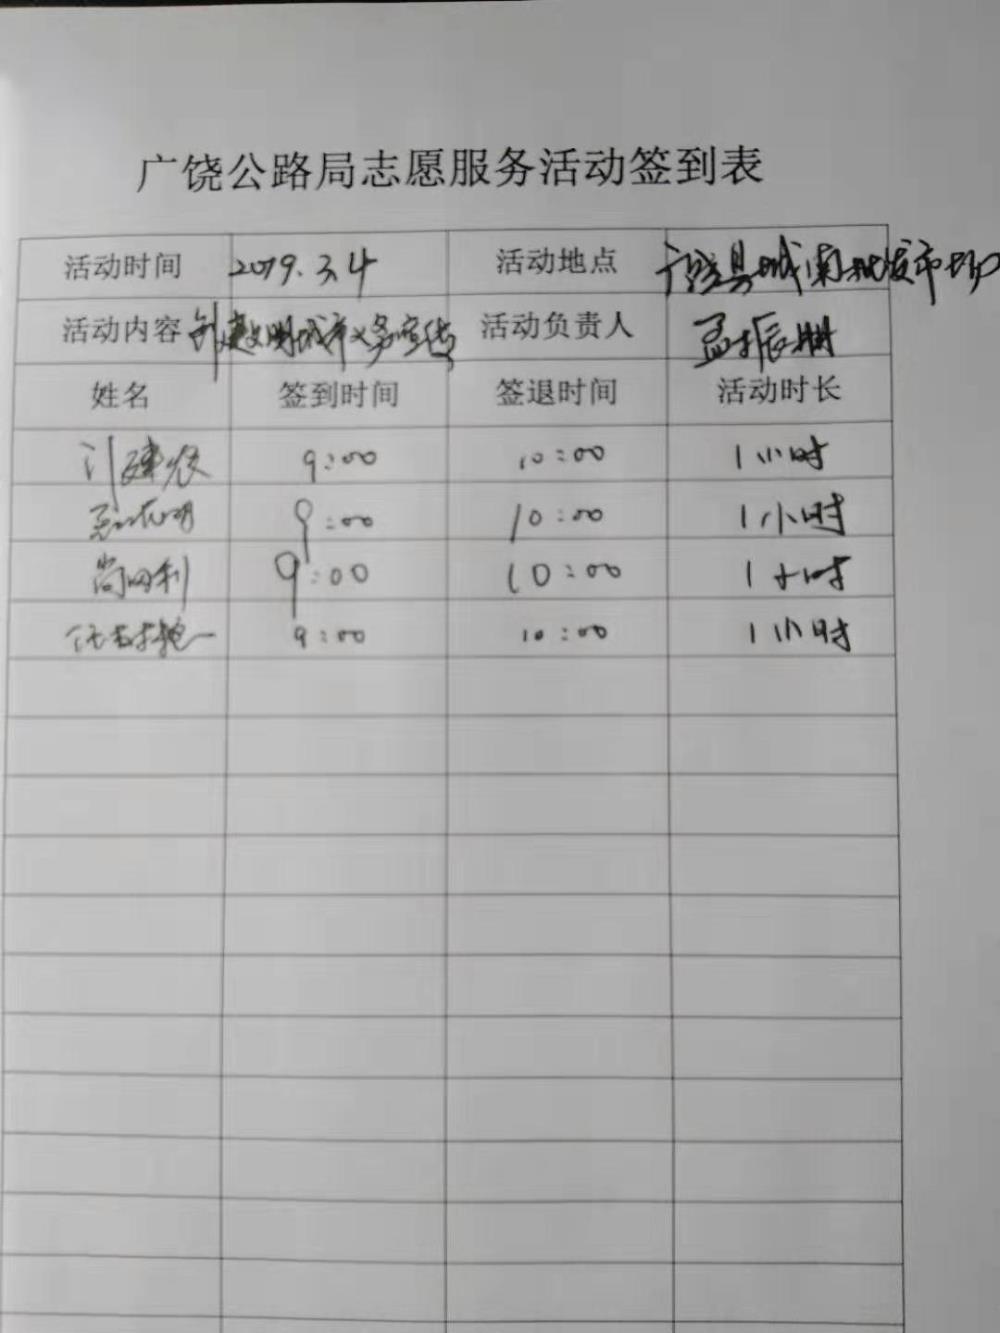 广饶公路局志愿服务活动签到表
活动时间 2019.3.4 活动地点 广饶县城南批发市场
活动内容 创建文明城市义务宣传 活动负责人 孟振
姓名 签到时间 签退时间 活动时长
建 9:00 10:00 1小时
9:00 10:00 1小时
尚 利 9:00 10:00 1小时
9:00 10:00 1小时